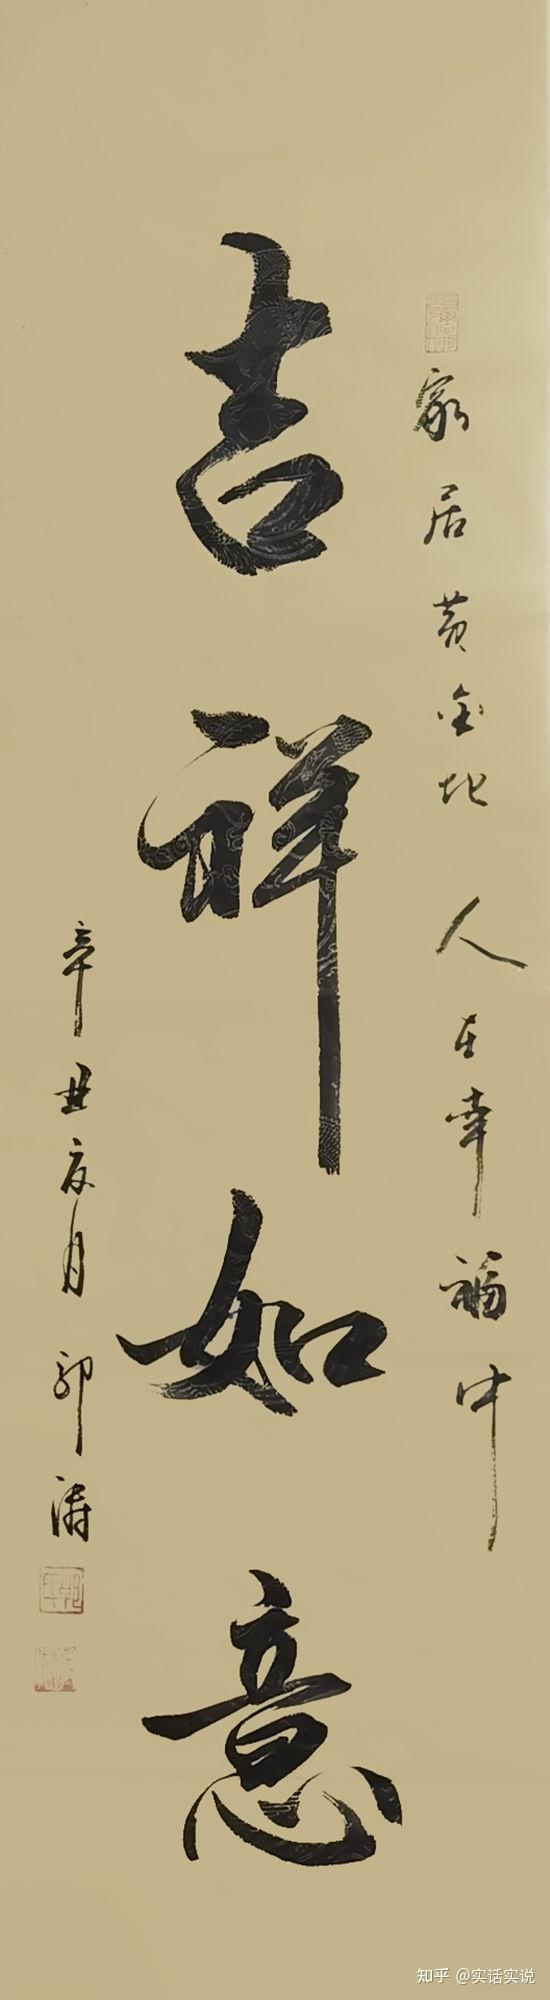 家居黄金地 人在幸福中
吉祥如意
辛丑亥月 郭涛
知乎 @实话实说